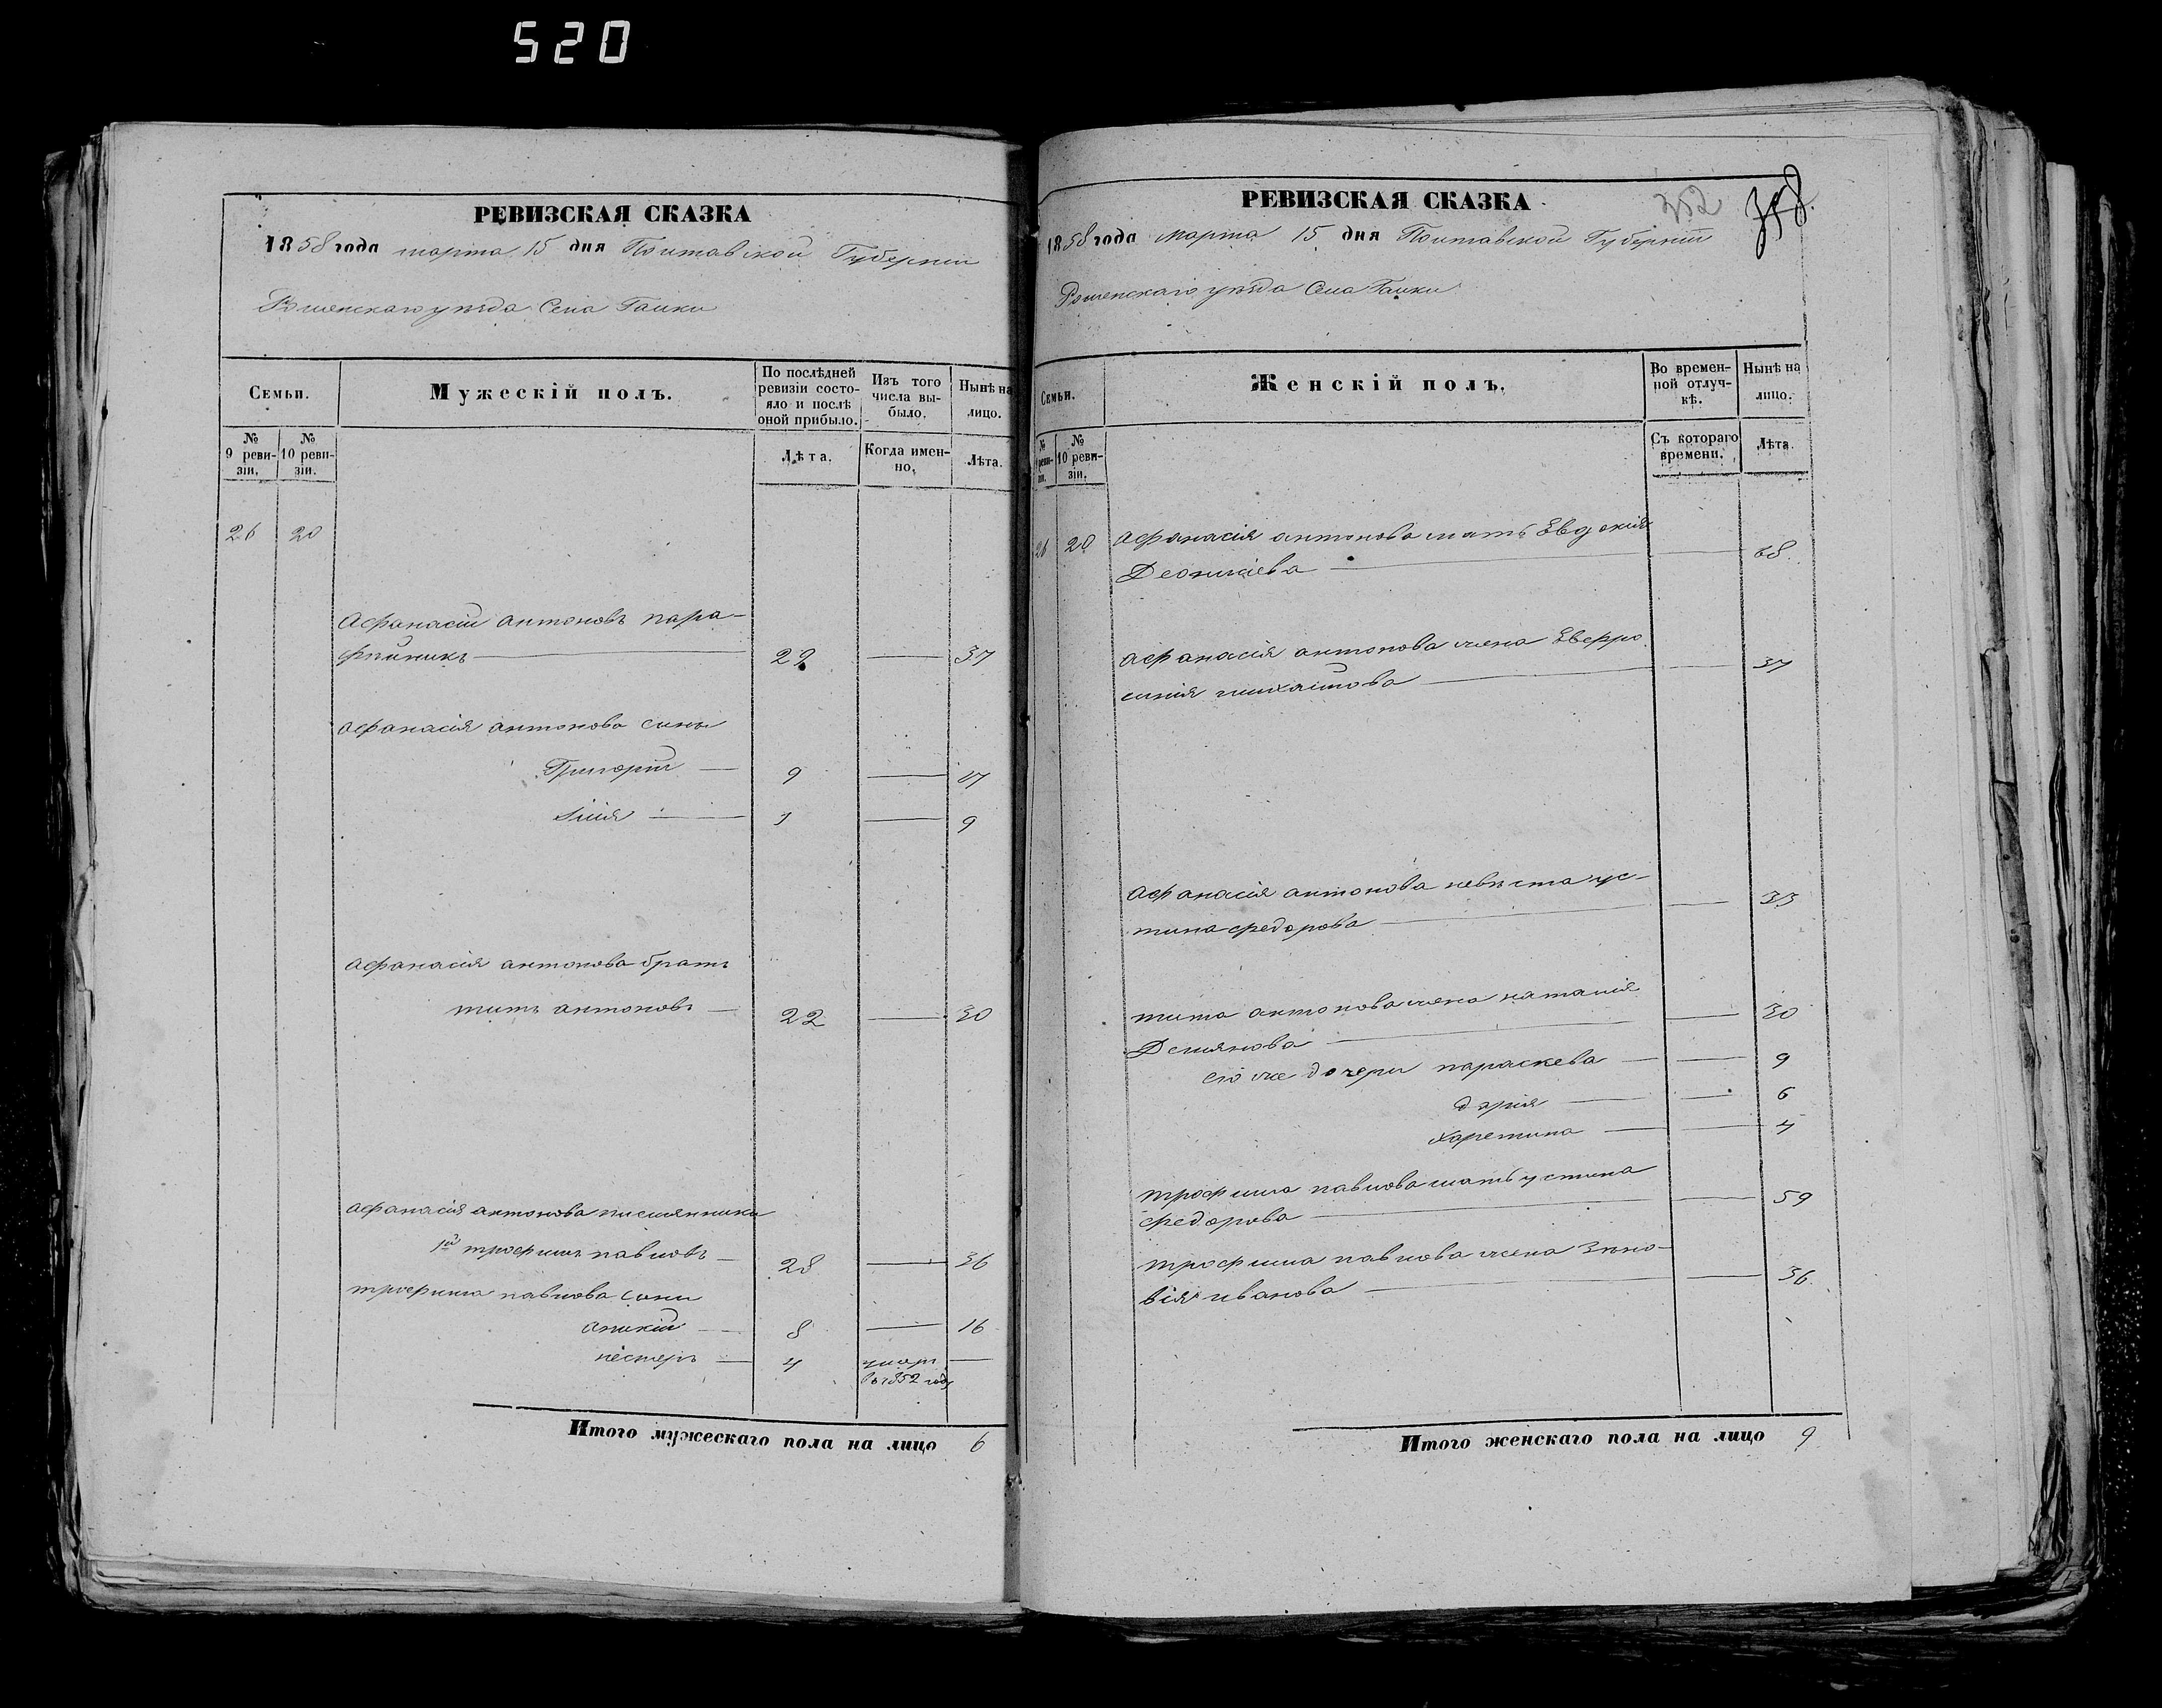 520
РЕВИЗСКАЯ СКАЗКА
1858 года марта 15 дня Полтавской Губерніи
Роменскаго уѣзда Села Галки
Семьи.
Мужескій полъ.
По послѣдней ревизіи состояло и послѣ оной прибыло.
Изъ того числа выбыло.
Нынѣ на лицо.
№ 9 ревизіи.
№ 10 ревизіи.
Лѣта.
Когда именно.
Лѣта.
26 20
Афанасій антоновъ пара-
29 — 37
афанасія антонова сины
Григорій — 9 — 17
Илія — 1 — 9
афанасія антонова братъ
титъ антоновъ — 22 — 30
афанасія антонова племянники
1й трофимъ павловъ — 28 — 36
трофима павлова сини
аникій — 8 — 16
нестеръ — 4 умеръ —
въ 1852 году
Итого мужескаго пола на лицо 6
РЕВИЗСКАЯ СКАЗКА
352 358.
1858 года марта 15 дня Полтавской Губерніи
Роменскаго уѣзда Села Галки
Семьи.
Женскій полъ.
Во временной отлучкѣ.
Нынѣ на лицо.
№ ревизіи.
№ 10 ревизіи.
Съ котораго времени.
Лѣта.
26 20 афанасія антонова мать Евдокія
— — 68.
афанасія антонова жена Евфро
синія михайлова — — 37
афанасія антонова невѣста ус-
тина федорова — — 33
тита антонова жена наталія
Демянова — — 30
его же дочери параскева — — 9
дарія — — 6
харетина — — 4
трофима павлова мать устина
федорова — — 59
трофима павлова жена Зино-
вія иванова — — 36.
Итого женскаго пола на лицо 9